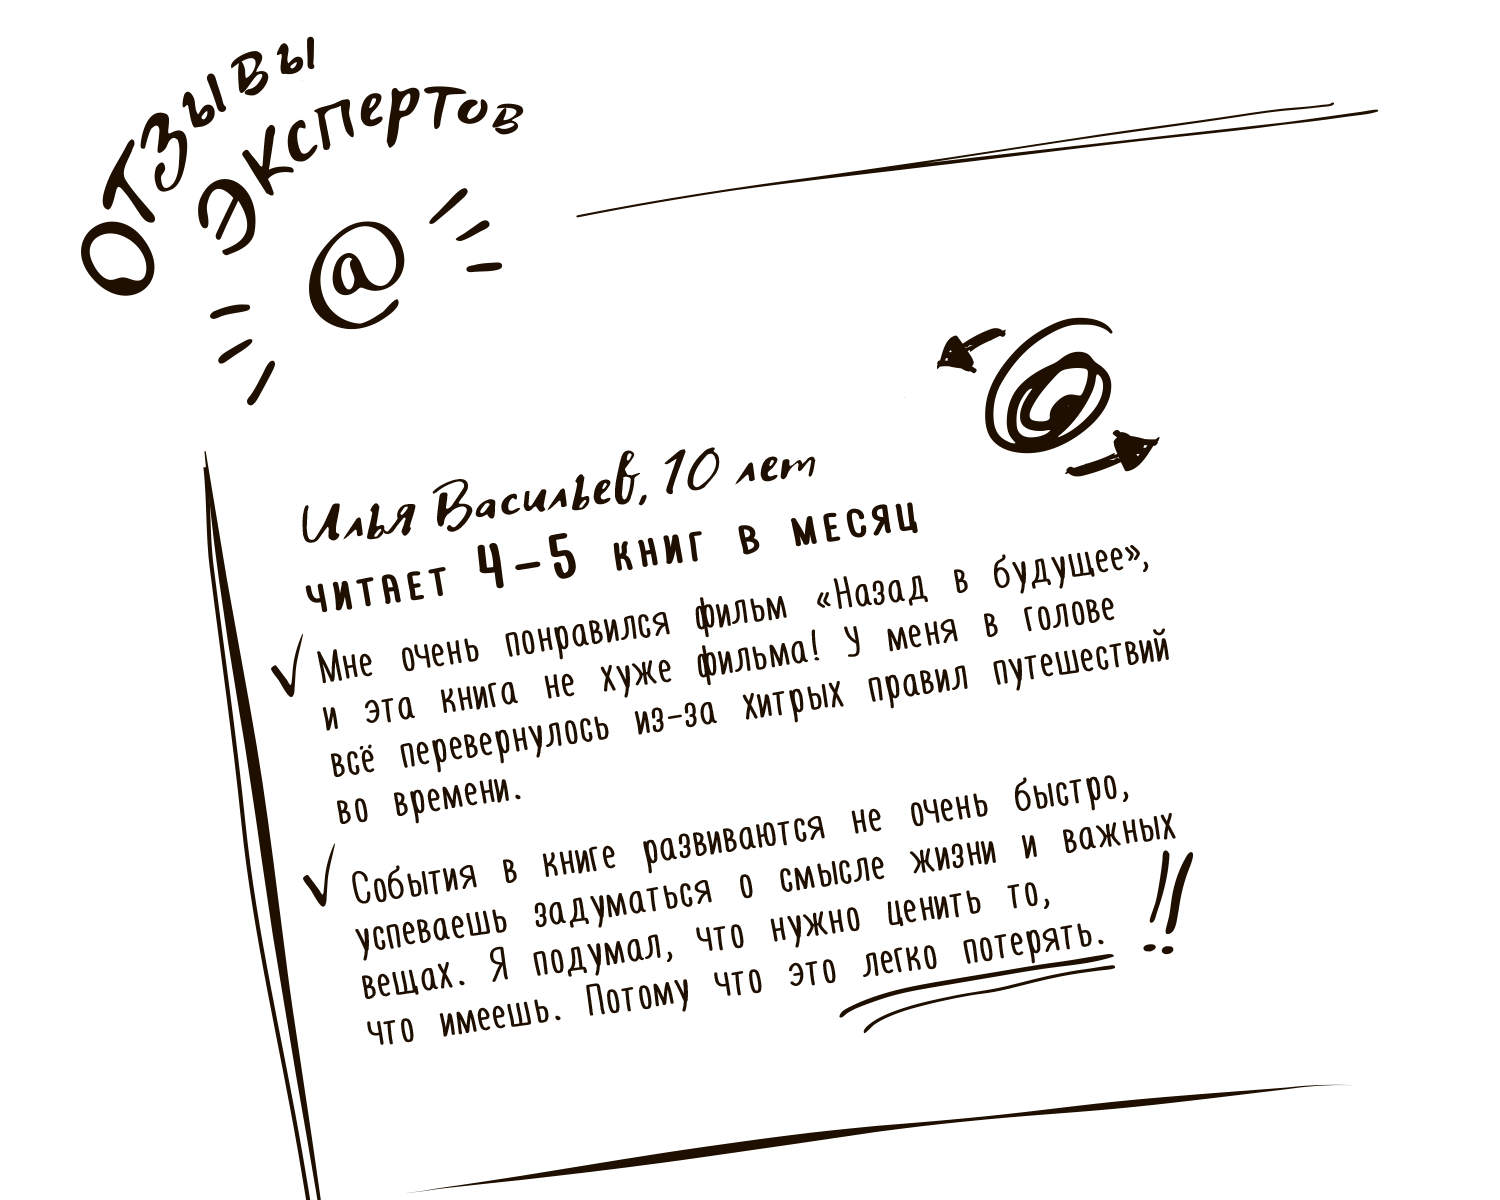 Отзывы
экспертов
@
Илья Васильев, 10 лет
читает 4-5 книг в месяц
Мне очень понравился фильм «Назад в будущее»,
и эта книга не хуже фильма! У меня в голове
всё перевернулось из-за хитрых правил путешествий
во времени.
События в книге развиваются не очень быстро,
успеваешь задуматься о смысле жизни и важных
вещах. Я подумал, что нужно ценить то,
что имеешь. Потому что это легко потерять.
!!